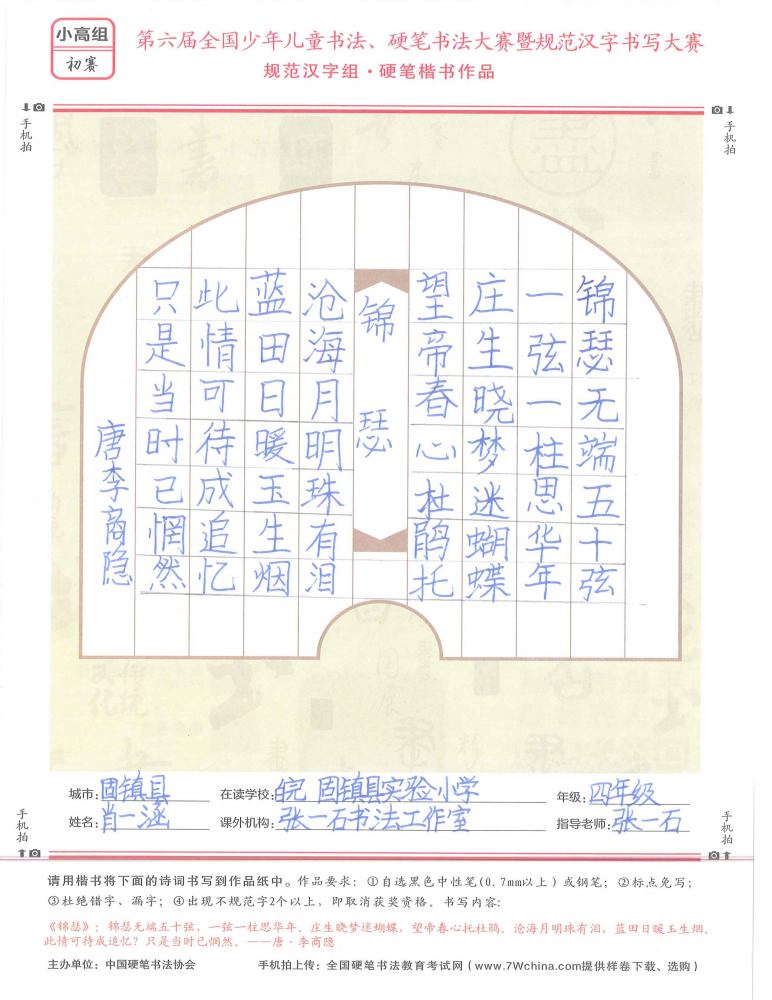 小高组
初赛
第六届全国少年儿童书法、硬笔书法大赛暨规范汉字书写大赛
规范汉字组·硬笔楷书作品
手机拍
手机拍
锦瑟无端五十弦
一弦一柱思华年
庄生晓梦迷蝴蝶
望帝春心杜鹃托
锦瑟
沧海月明珠有泪
蓝田日暖玉生烟
此情可待成追忆
只是当时已惘然
唐李商隐
城市:固镇县 在读学校:皖 固镇县实验小学 年级:四年级
姓名:肖一涵 课外机构:张一石书法工作室 指导老师:张一石
手机拍
手机拍
请用楷书将下面的诗词书写到作品纸中。作品要求:①自选黑色中性笔(0.7mm以上)或钢笔;②标点免写;
③杜绝错字、漏字;④出现不规范字2个以上,即取消获奖资格。书写内容:
《锦瑟》:锦瑟无端五十弦,一弦一柱思华年。庄生晓梦迷蝴蝶,望帝春心托杜鹃。沧海月明珠有泪,蓝田日暖玉生烟。
此情可待成追忆?只是当时已惘然。——唐·李商隐
主办单位:中国硬笔书法协会 手机拍上传:全国硬笔书法教育考试网(www.7Wchina.com提供样卷下载、选购)